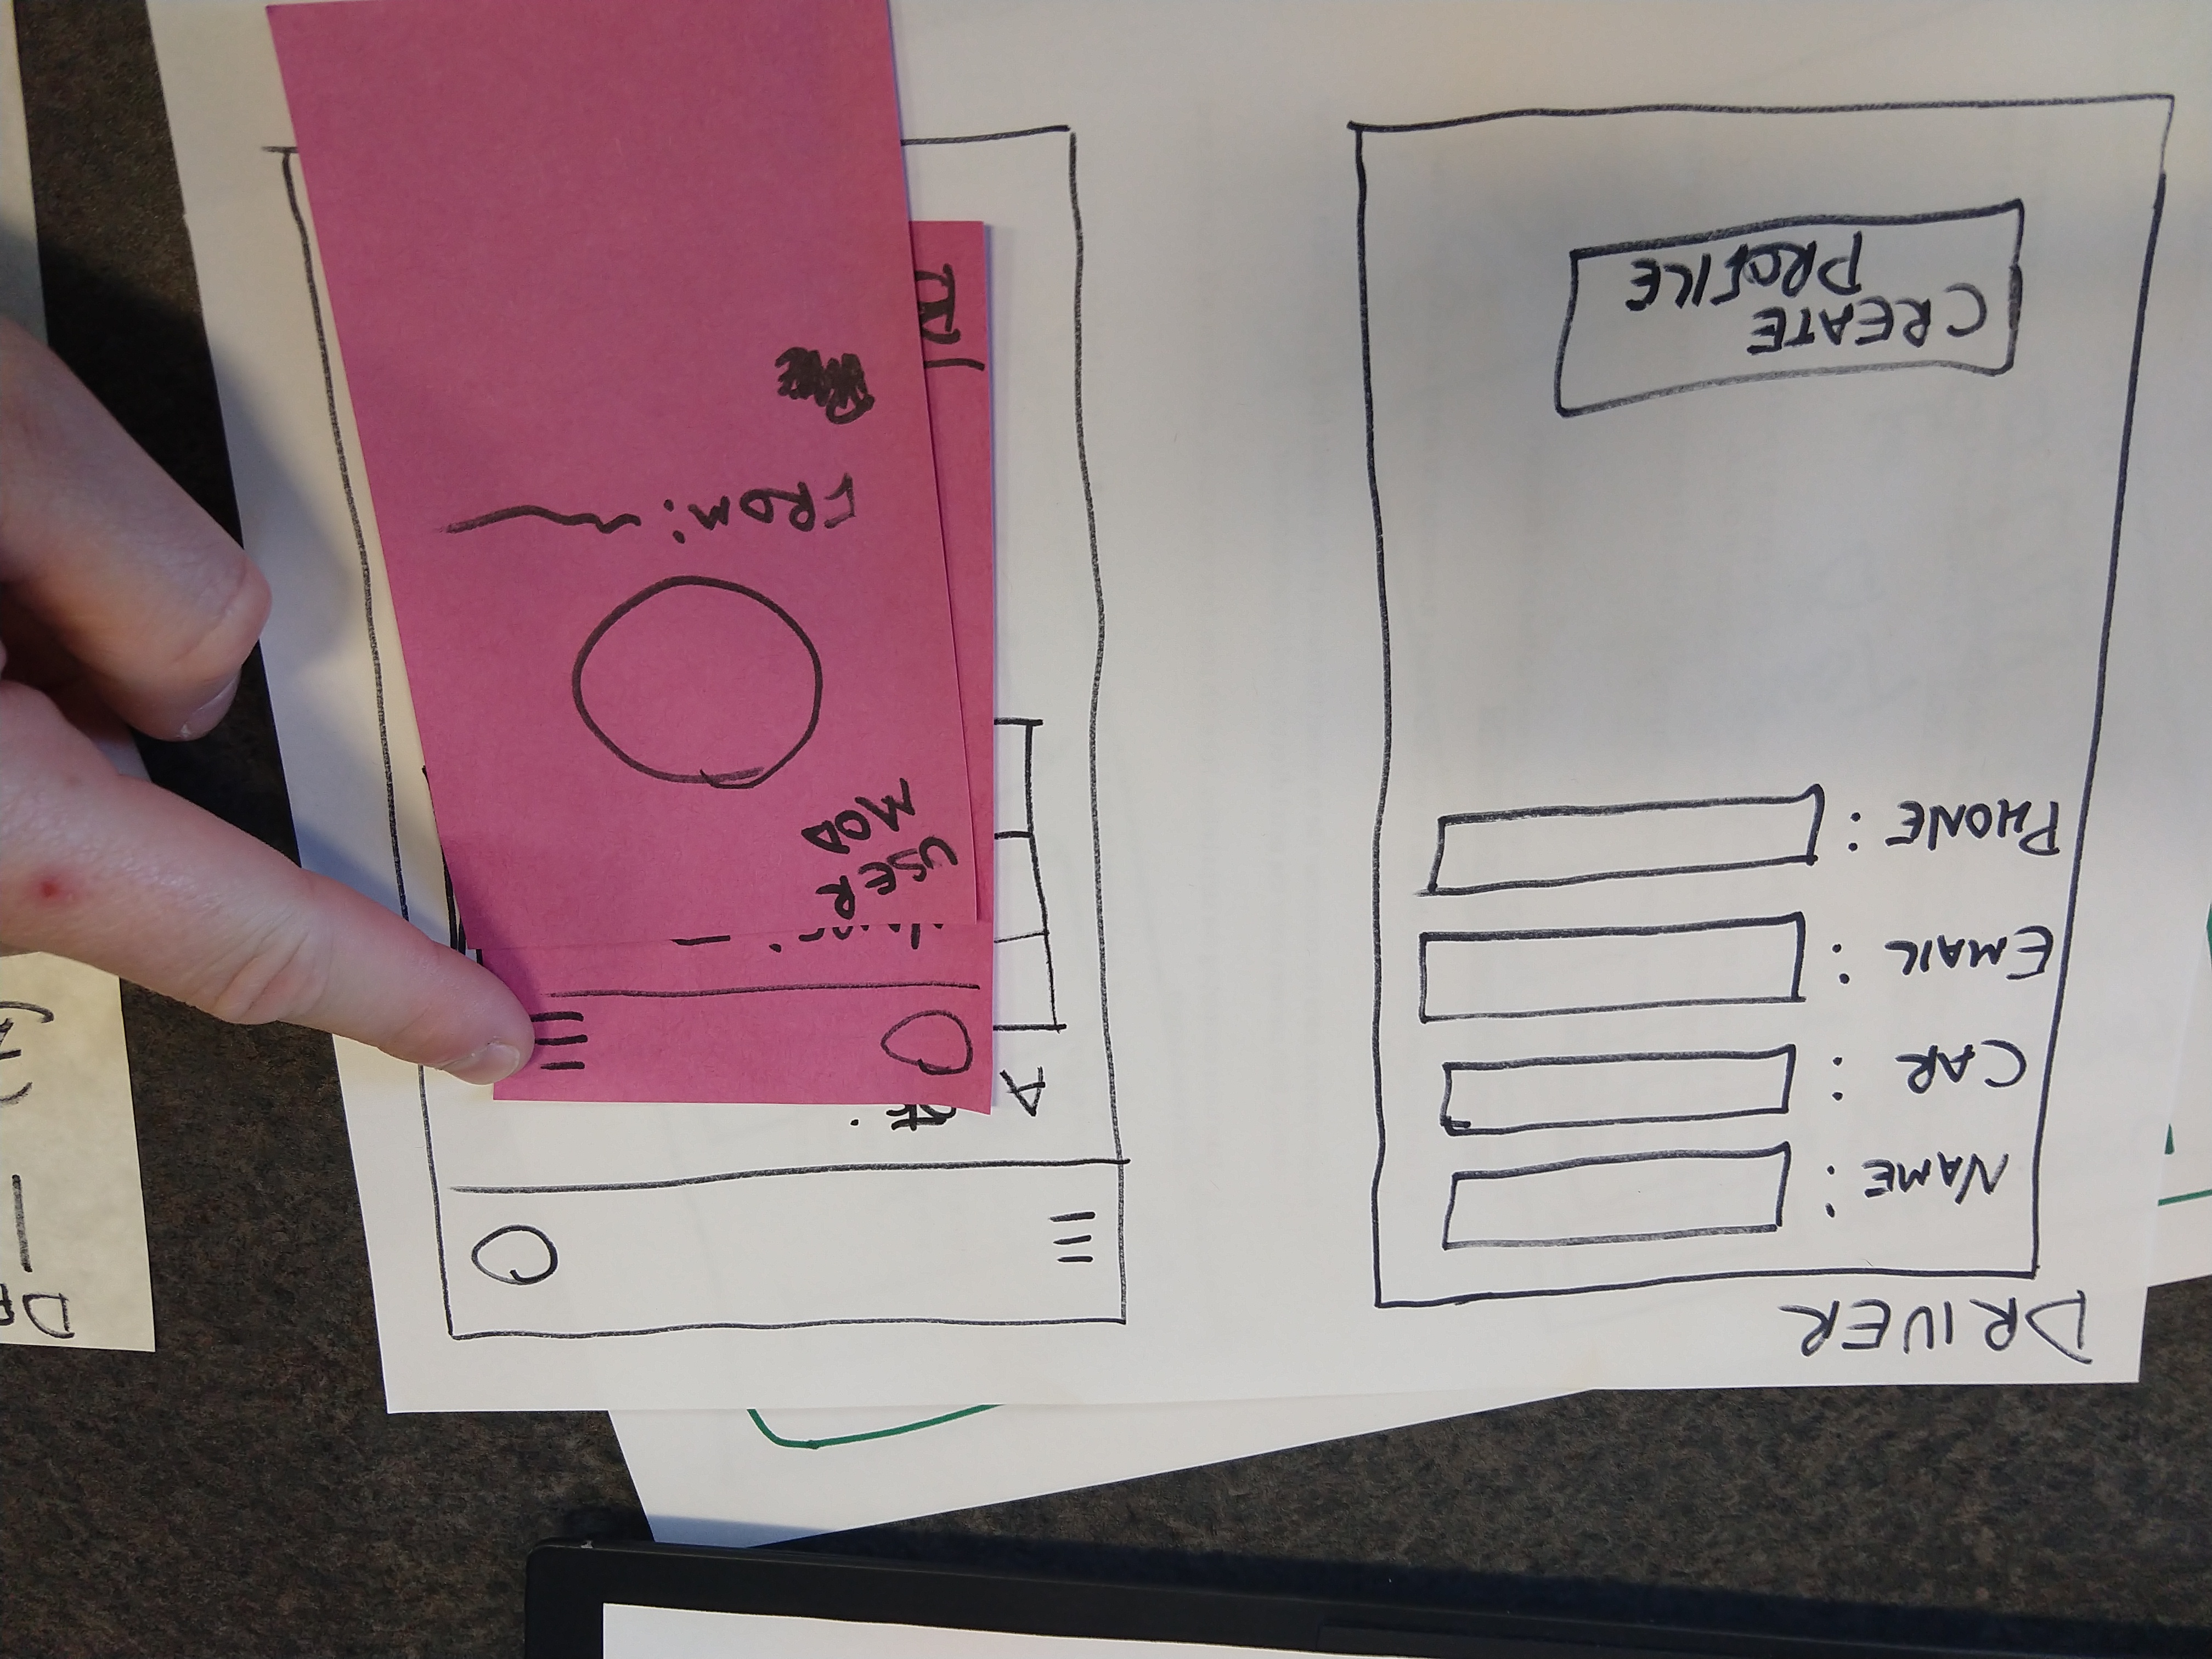 DRIVER
NAME:
CAR :
EMAIL :
PHONE :
CREATE
PROFILE
A
USER
MOD
FROM: